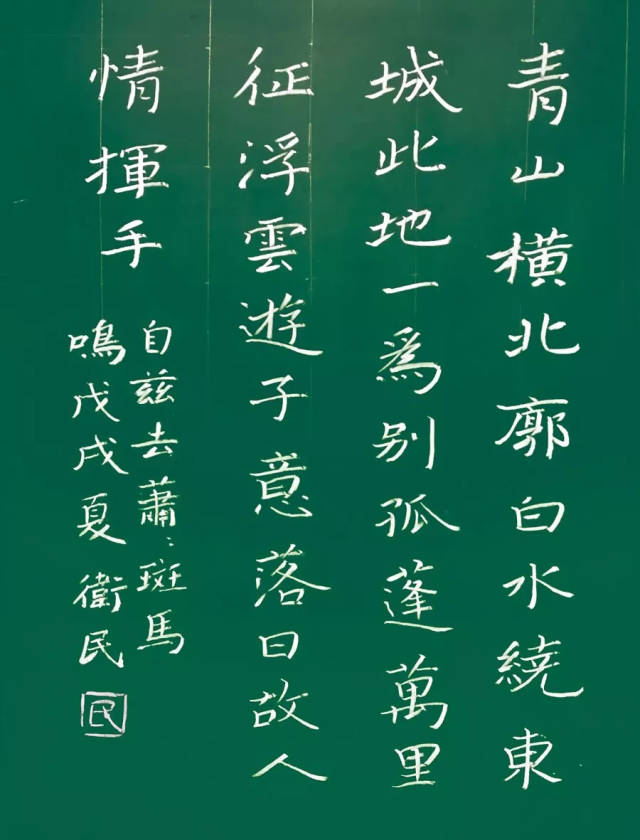 青山橫北廓白水繞東
城此地一爲别孤蓬萬里
征浮雲遊子意落日故人
情揮手
自兹去蕭〻斑馬
鳴戊戌夏衛民
民